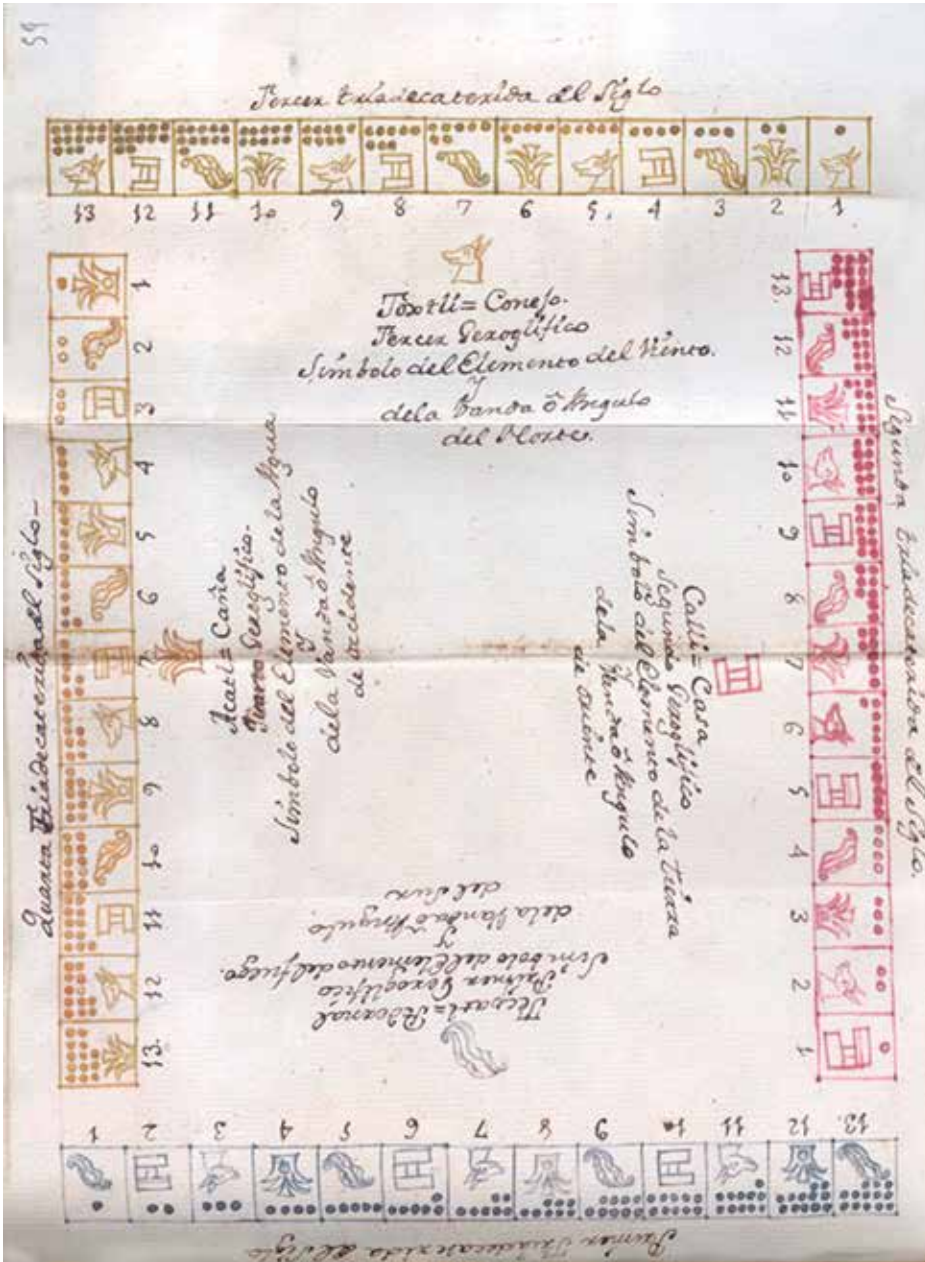 59
Tercer triadecaterida del Siglo
13 12 11 10 9 8 7 6 5. 4 3 2 1
Toxtli = Conejo.
Tercer Geroglifico
Simbolo del Elemento del Viento.
y
dela Vanda ô Angulo
del Norte.
Segunda triadecaterida del Siglo.
13. 12 11 10 9 8 7 6 5 4 3 2 1
Calli = Casa
Segundo Geroglifico
Simbolo del Elemento de la tierra
dela Vanda ô Angulo
de oriente
Quarta Triadecaterida del Siglo
1 2 3 4 5 6 7 8 9 10 11 12 13.
Acatl = Caña
Quarto Geroglifico.
Simbolo del Elemento dela Agua
y
dela Vanda ô Angulo
de occidente
Tecpatl = Pedernal
Primer Geroglifico
Simbolo del Elemento del fuego.
y
dela Vanda ô Angulo.
del Sur
1 2 3 4 5 6 7 8 9 10 11 12 13.
Primer Triadecaterida del Siglo